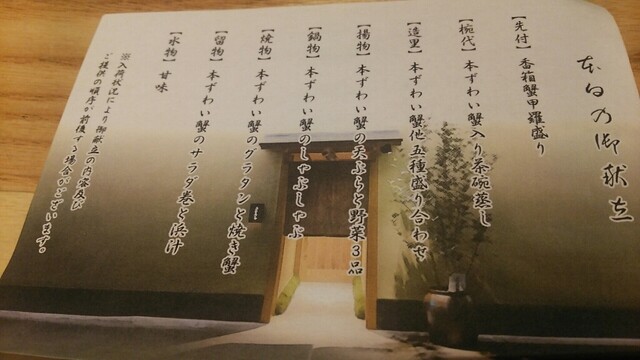 本日の御献立
【先付】香箱蟹甲羅盛り
【椀代】本ずわい蟹入り茶碗蒸し
【造里】本ずわい蟹他五種盛り合わせ
【揚物】本ずわい蟹の天ぷらと野菜3品
【鍋物】本ずわい蟹のしゃぶしゃぶ
【焼物】本ずわい蟹のグラタンと焼き蟹
【留物】本ずわい蟹のサラダ巻と汁
【水物】甘味
※入荷状況により御献立の内容及び
ご提供の順序が前後する場合がございます。